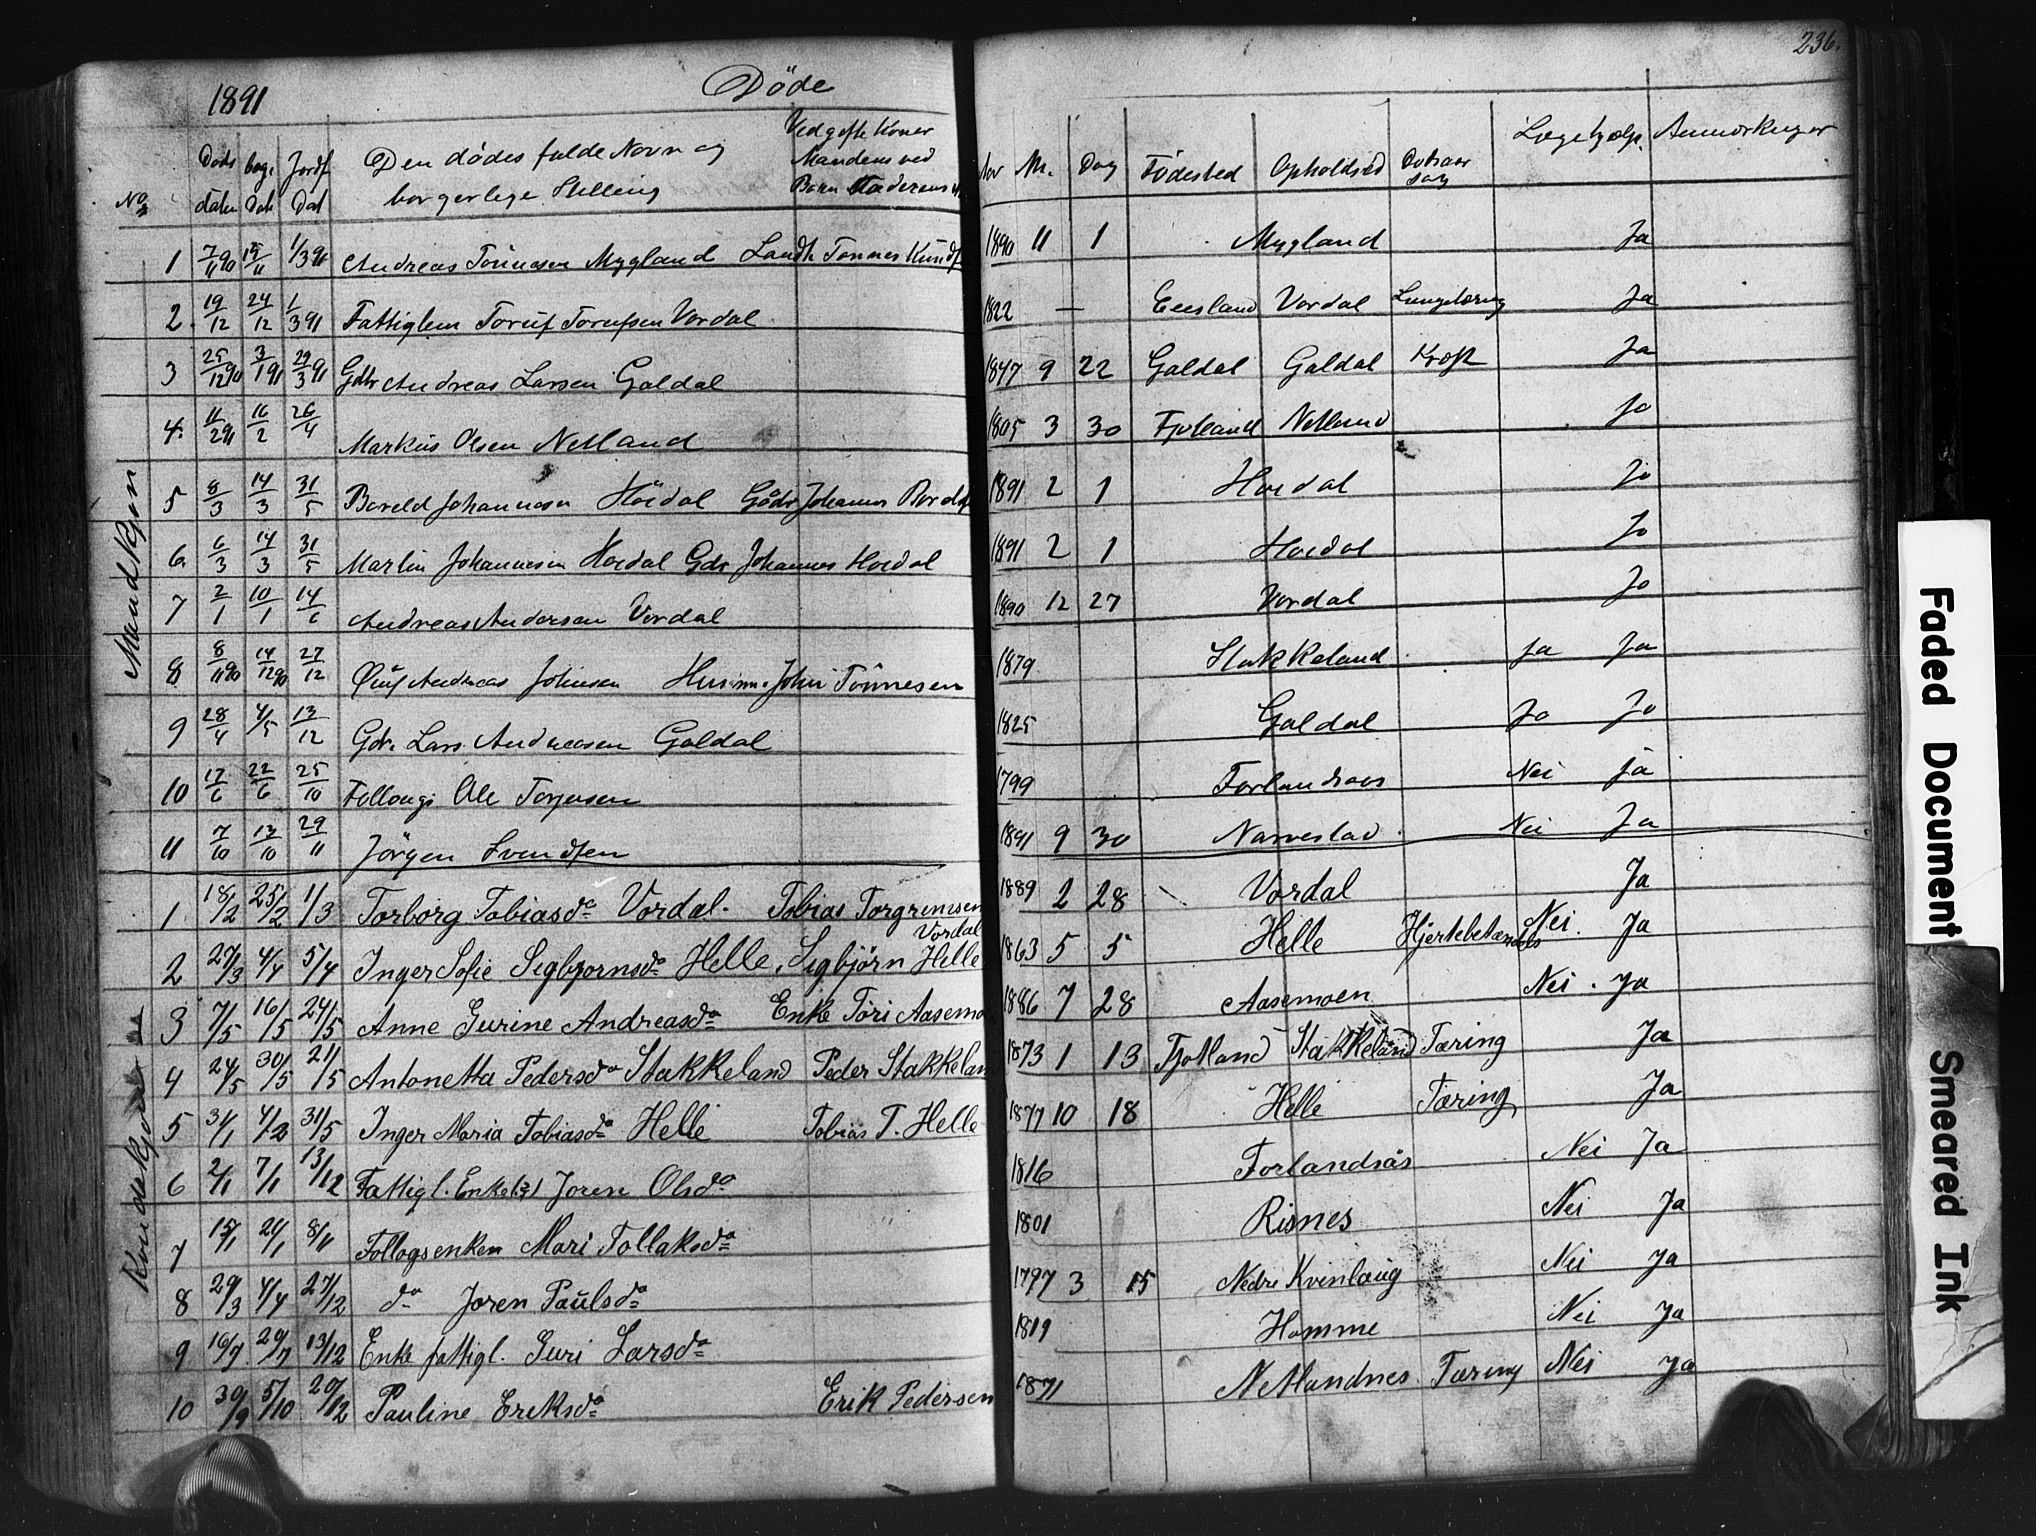 236.
1891 Döde
No Døds daten beg. Dat Jordf Dat Den dødes fulde Navn og borgerlege Stelling Ved gifte Koner Mandens ved Børn Faderens
Aar M. Dag Fødested Opholdssted Dødsaarsag Lægehjælp. Anmærkninger
Mandkjøn
1 7/11 90 15/11 1/3 91 Andreas Tönnesen Mygland Landh Tønnes Kunds 1890 11 1 Mygland Ja
2 19/12 24/12 1/3 91 Fattiglem Toruf Torufsen Vordal 1822 — Eiesland Vordal Ja
3 25/12 90 3/1 91 29/3 91 Gdbr Andreas Larsen Galdal 1847 9 22 Galdal Galdal Kræft Ja
4. 11/2 91 16/2 26/4 Markus Olsen Netland 1805 3 30 Fjotland Netland Ja
5 8/3 14/3 31/5 Boreld Johannesen Höidal Gdbr Johannes 1891 2 1 Hoidal Ja
6 6/3 14/3 31/5 Martin Johannesen Hoidal Gdbr Johannes Hoidal 1891 2 1 Hoidal Ja
7 2/1 10/1 14/6 Andreas Andersen Vordal 1890 12 27 Vordal Ja
8 8/11 90 14/12 90 27/12 Andreas Johnsen Husm. John Tönnesen 1879 Stakkeland Ja Ja
9 28/4 4/5 13/12 Gdbr. Lars Andreasen Galdal 1825 Galdal Ja Ja
10 17/6 22/6 25/10 Follaugs Ole Torjusen 1799 Forlandsaas Nei ja
11 7/10 13/10 29/11 Jörgen Svendsen 1891 9 30 Narvestad Nei Ja
Kvindekjøn
1 18/2 25/2 1/3 Torborg Tobiasda Vordal. Tobias Torgrimsen Vordal 1889 2 28 Vordal Ja
2 27/3 4/4 5/4 Inger Sofie Sigbjornsda Helle, Sigbjørn Helle 1863 5 5 Helle Hjertebetændels Nei. Ja
3 7/5 16/5 24/5 Anne Gurine Andreasda Enke Töri Aasemo 1886 7 28 Aasemoen Nei . Ja
4 24/5 30/5 21/5 Antonetta Pedersda Stakkeland Peder Stakkelan 1873 1 13 Fjotland Stakkeland Tæring Ja
5 31/1 4/2 31/5 Inger Maria Tobiasda Helle Tobias T. Helle 1877 10 18 Helle Tæring Ja
6 2/1 7/1 13/12 Fattigl. Enke Joren Olsda 1816 Forlandsås Nei Ja
7 15/1 20/1 8/11 Follogsenken Mari Tollaksda 1801 Risnes Nei Ja
8 29/3 4/4 27/12 da Joren Paulsda 1797 3 15 Nedre Kvinlaug Nei Ja
9 16/7 20/7 13/12 Enke fattigl. Guri Larsda 1819 Homme Nei Ja
10 30/9 5/10 20/12 Pauline Eriksda Erik Pedersen 1871 Netlandnes Tæring Nei Ja
Faded Document
Smeared Ink